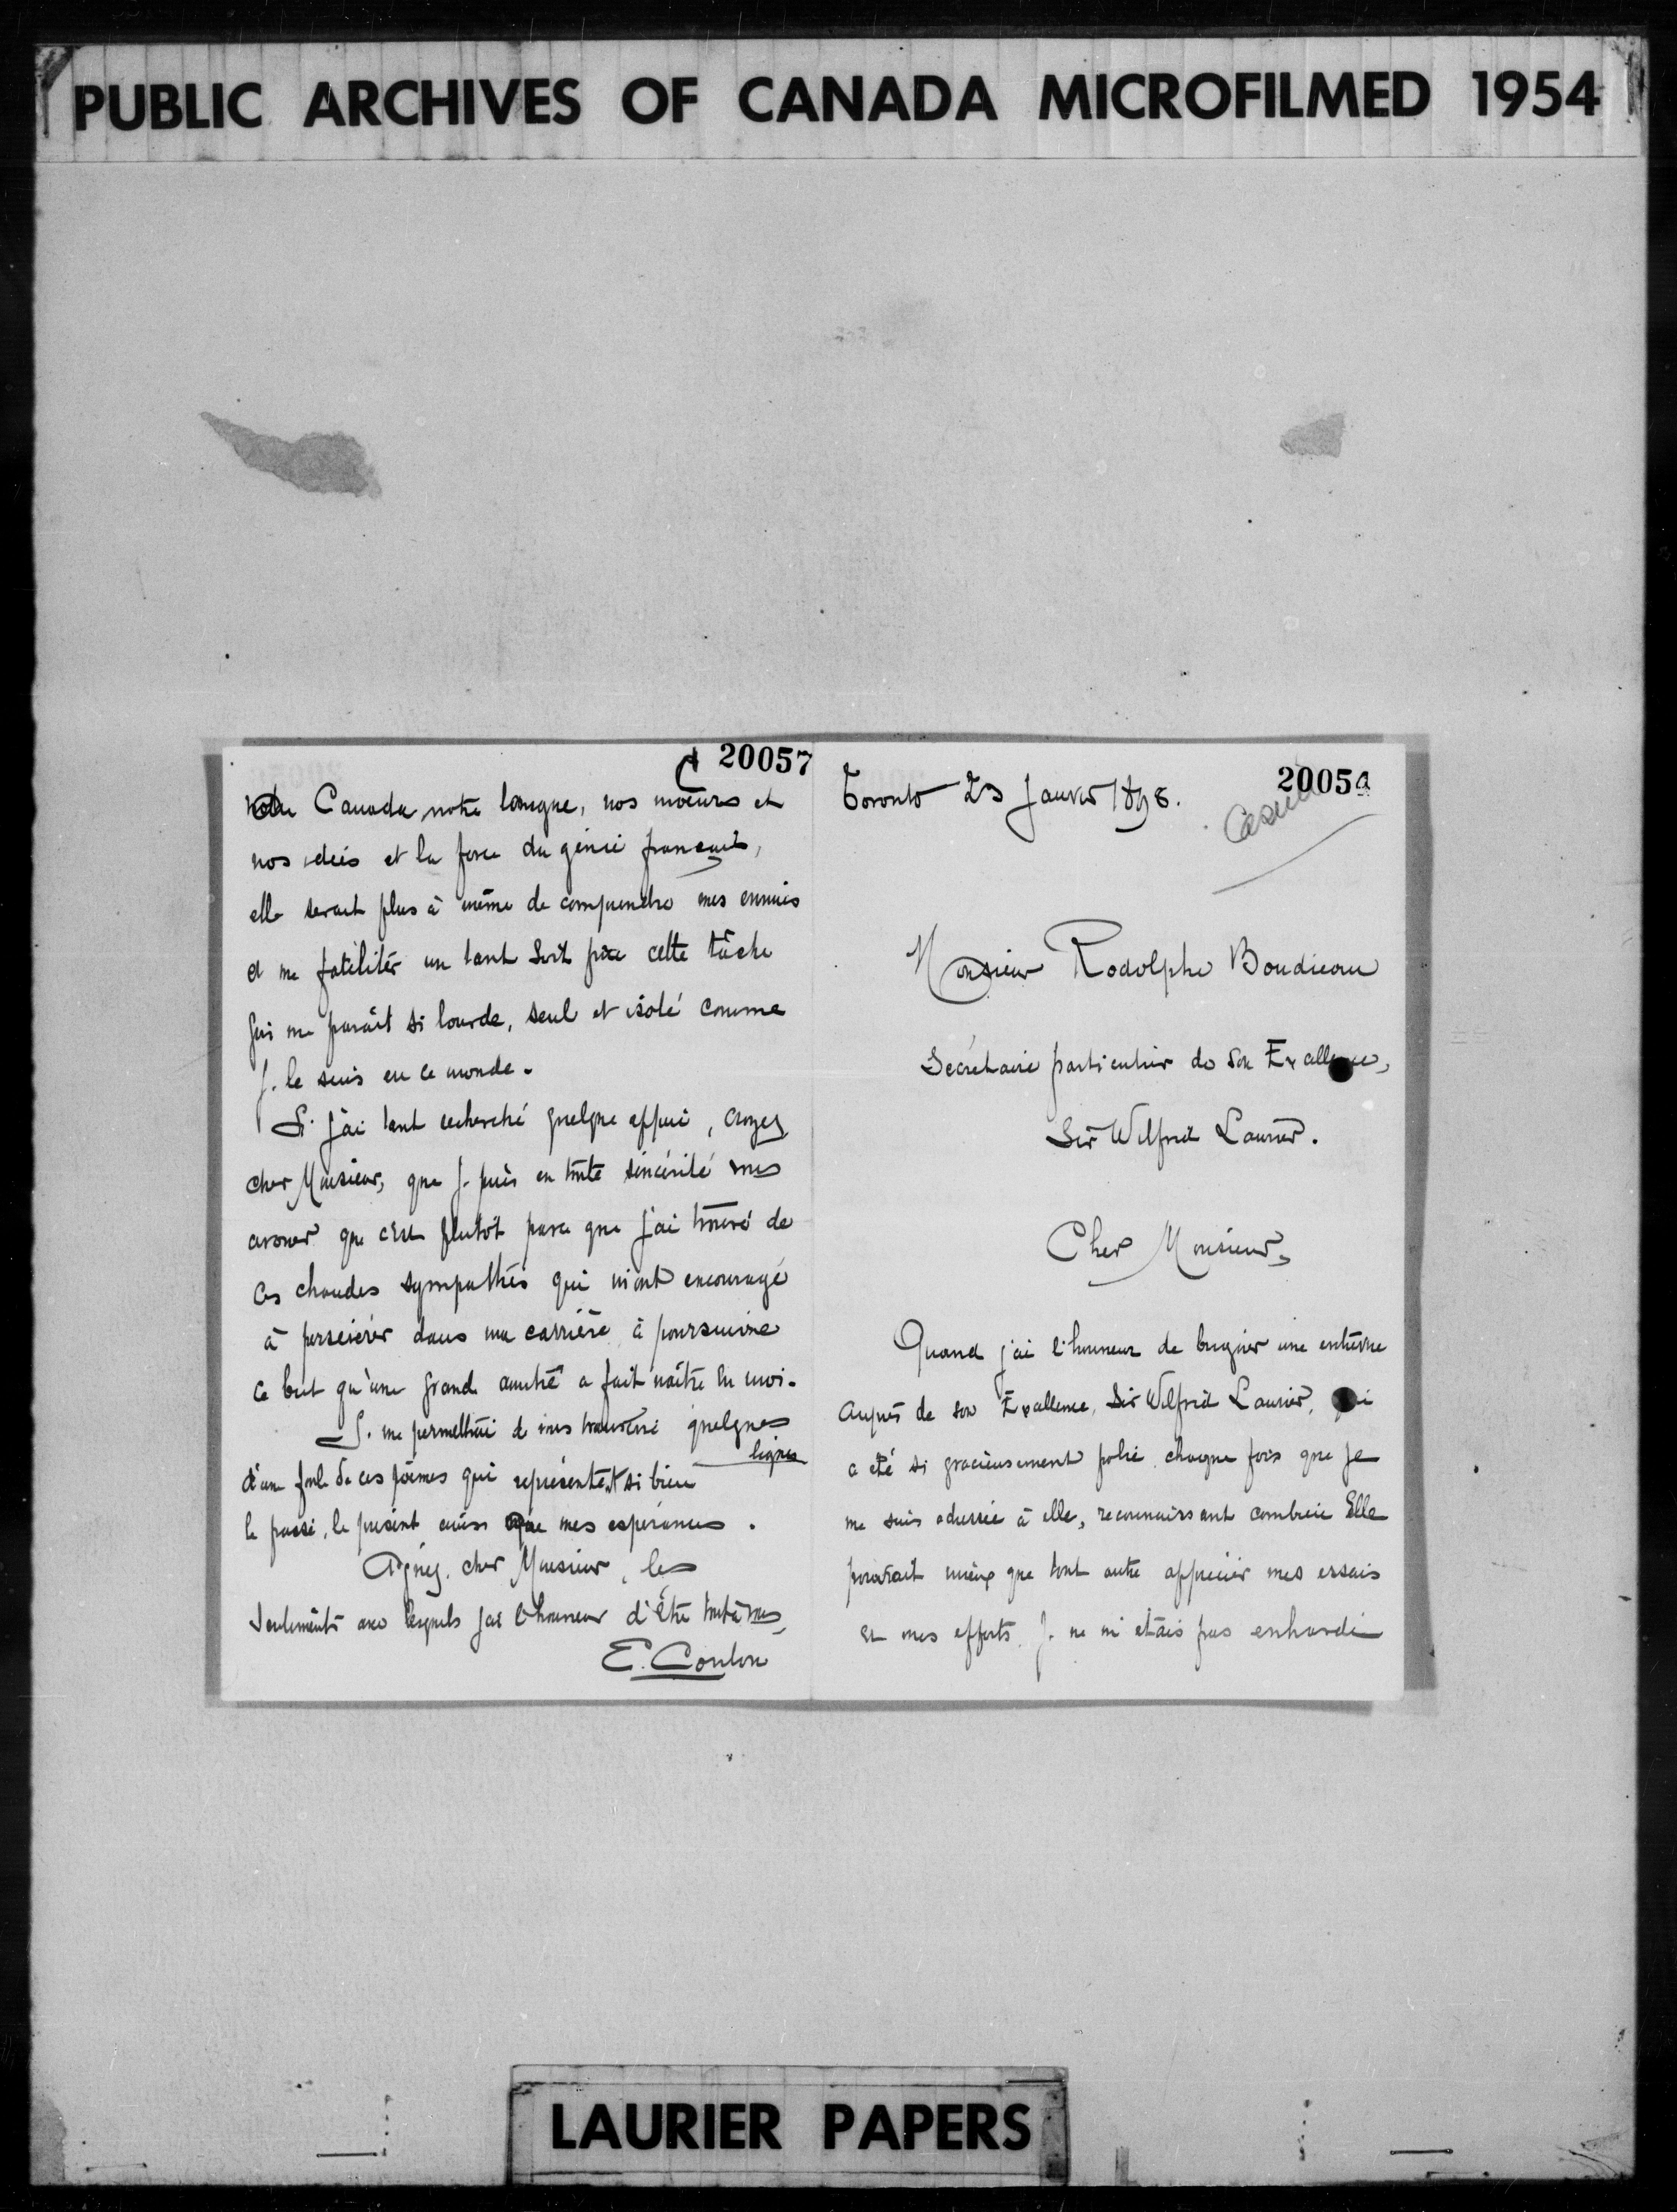 PUBLIC ARCHIVES OF CANADA MICROFILMED 1954
20057
notre Canada notre langue, nos moeurs et
nos idées et la force du génie français,
elle serait plus à même de comprendre mes ennuis
et me faciliter un tant soit peu cette tâche
qui me paraît si lourde, seul et isolé comme
je le suis en ce monde.
Si j'ai tant recherché quelque appui, croyez
cher Monsieur, que je puis en toute sincérité vous
avouer que c'est plutôt parce que j'ai trouvé de
ces chaudes sympathies qui m'ont encouragé
à persévérer dans ma carrière, à poursuivre
ce but qu'une grande amitié a fait naître en moi.
Je me permettrai de vous transcrire quelques
lignes
d'une foule de ces poèmes qui représentent si bien
le passé, le présent ainsi que mes espérances.
Agréez, cher Monsieur, les
sentiments avec lesquels j'ai l'honneur d'être tout à vous,
E. Coulon
2005
Toronto 23 Janvier 1898.
Monsieur Rodolphe Boudreau
Secrétaire particulier de Son Excellence,
Sir Wilfrid Laurier.
Cher Monsieur,
Quand j'ai l'honneur de briguer une entrevue
auprès de son Excellence, Sir Wilfrid Laurier, qui
a été si gracieusement polie chaque fois que je
me suis adressé à elle, reconnaissant combien Elle
pourrait mieux que tout autre apprécier mes essais
et mes efforts. Je ne m'étais pas enhardi
LAURIER PAPERS